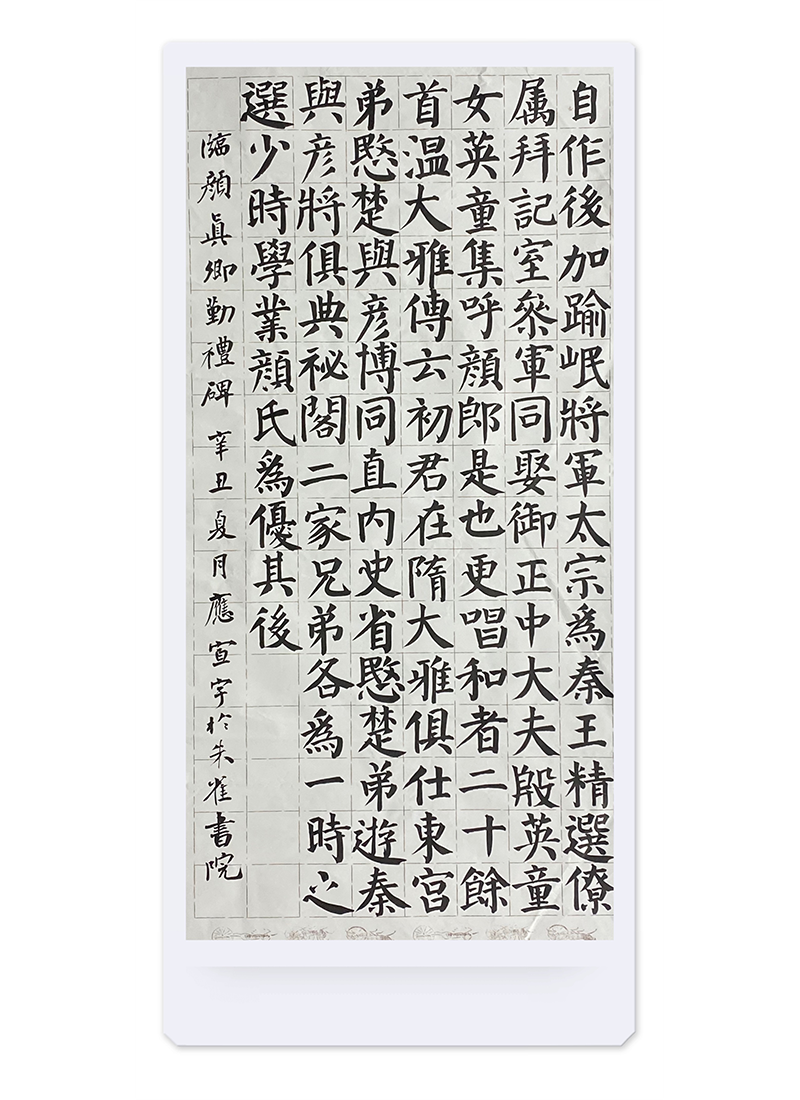 自作後加踰岷將軍太宗爲秦王精選僚
属拜記室叅軍同娶御正中大夫殷英童
女英童集呼顔郎是也更唱和者二十餘
首温大雅傳云初君在隋大雅俱仕東宫
弟愍楚與彦博同直内史省愍楚弟遊秦
與彦將俱典祕閣二家兄弟各爲一時之
選少時學業顔氏爲優其後
臨顔眞卿勤禮碑 辛丑夏月應宣宇於朱雀書院